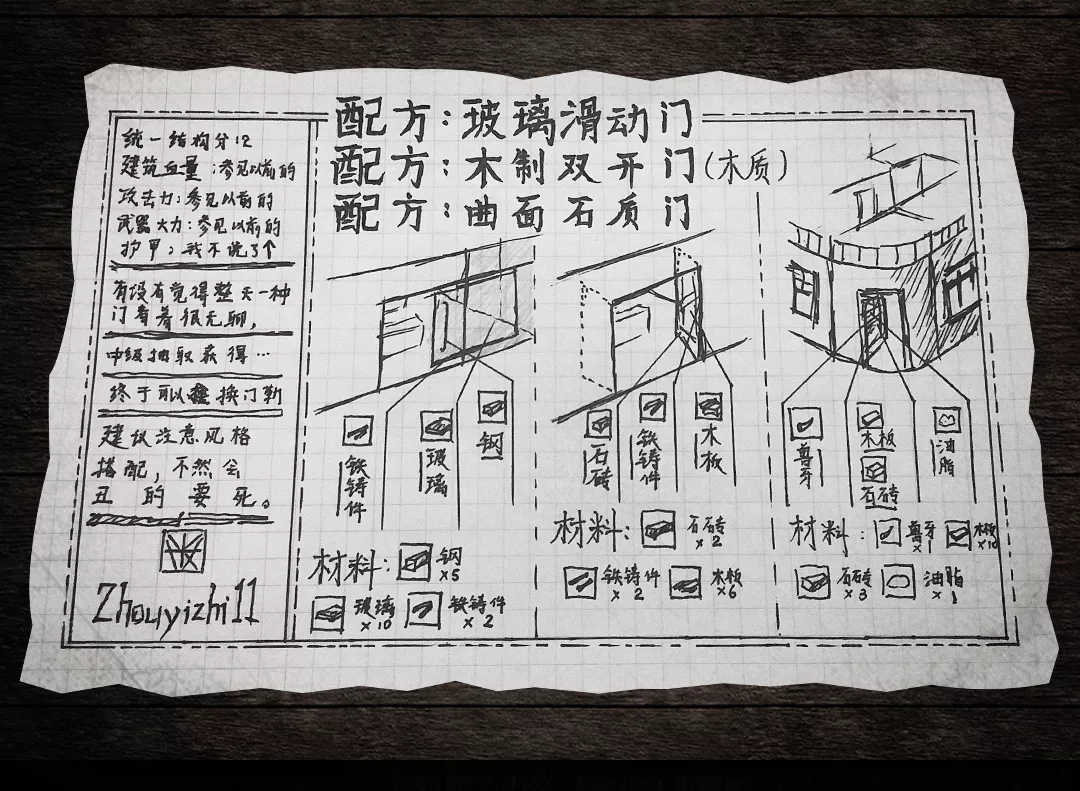 配方:玻璃滑动门
配方:木制双开门(木质)
配方:曲面石质门
统一结构分:2
建筑血量:参见以前的
攻击力:参见以前的
武器火力:参见以前的
护甲:我不说了个
有没有觉得整天一种
门看着很无聊,
中级抽取获得…
终于可以换门勒
建议注意风格
搭配,不然会
丑的要死。
Zhouyizhi11
铁铸件
玻璃
钢
材料:钢
×5
玻璃
×10
铁铸件
×2
石砖
铁铸件
木板
材料:石砖
×2
铁铸件
×2
木板
×6
兽牙
木板
石砖
油脂
材料:兽牙
×1
木板
×10
石砖
×3
油脂
×1